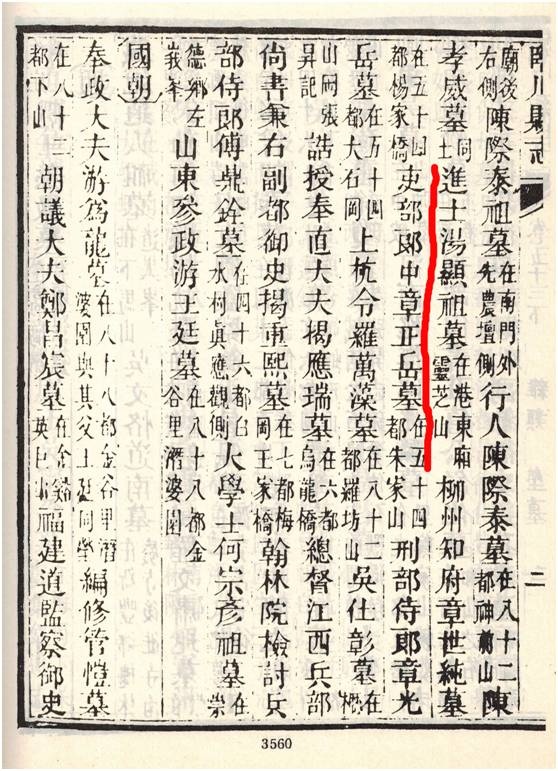 臨川縣志
二
廟後右側陳際泰祖墓在南門外先農壇側行人陳際泰墓在八十二都神前山陳
孝威墓同土進士湯顯祖墓在港東廂靈芝山柳州知府章世純墓
在五十四都楊家橋吏部郎中章正岳墓在五十四都朱家山刑部侍郎章光
岳墓在五十四都大石岡上杭令羅萬藻墓在八十二都羅坊山吳仕彰墓在概
山岡張昇記誥授奉直大夫揭應瑞墓在六都烏龍橋總督江西兵部
尚書兼右副都御史揭重熙墓在七都梅岡王家橋翰林院檢討兵
部侍郎傅鼎銓墓在四十六都白水柯真應觀側大學士何宗彥祖墓在崇
德鄉左峩峯山東參政游王廷墓在八十八都金谷里潛婆園
國朝
奉政大夫游爲龍墓在八十八都金谷里潛婆園與其父王廷同塋編修管愷墓
在八十二都下山朝議大夫鄭昌宸墓在金山福建道監察御史
3560